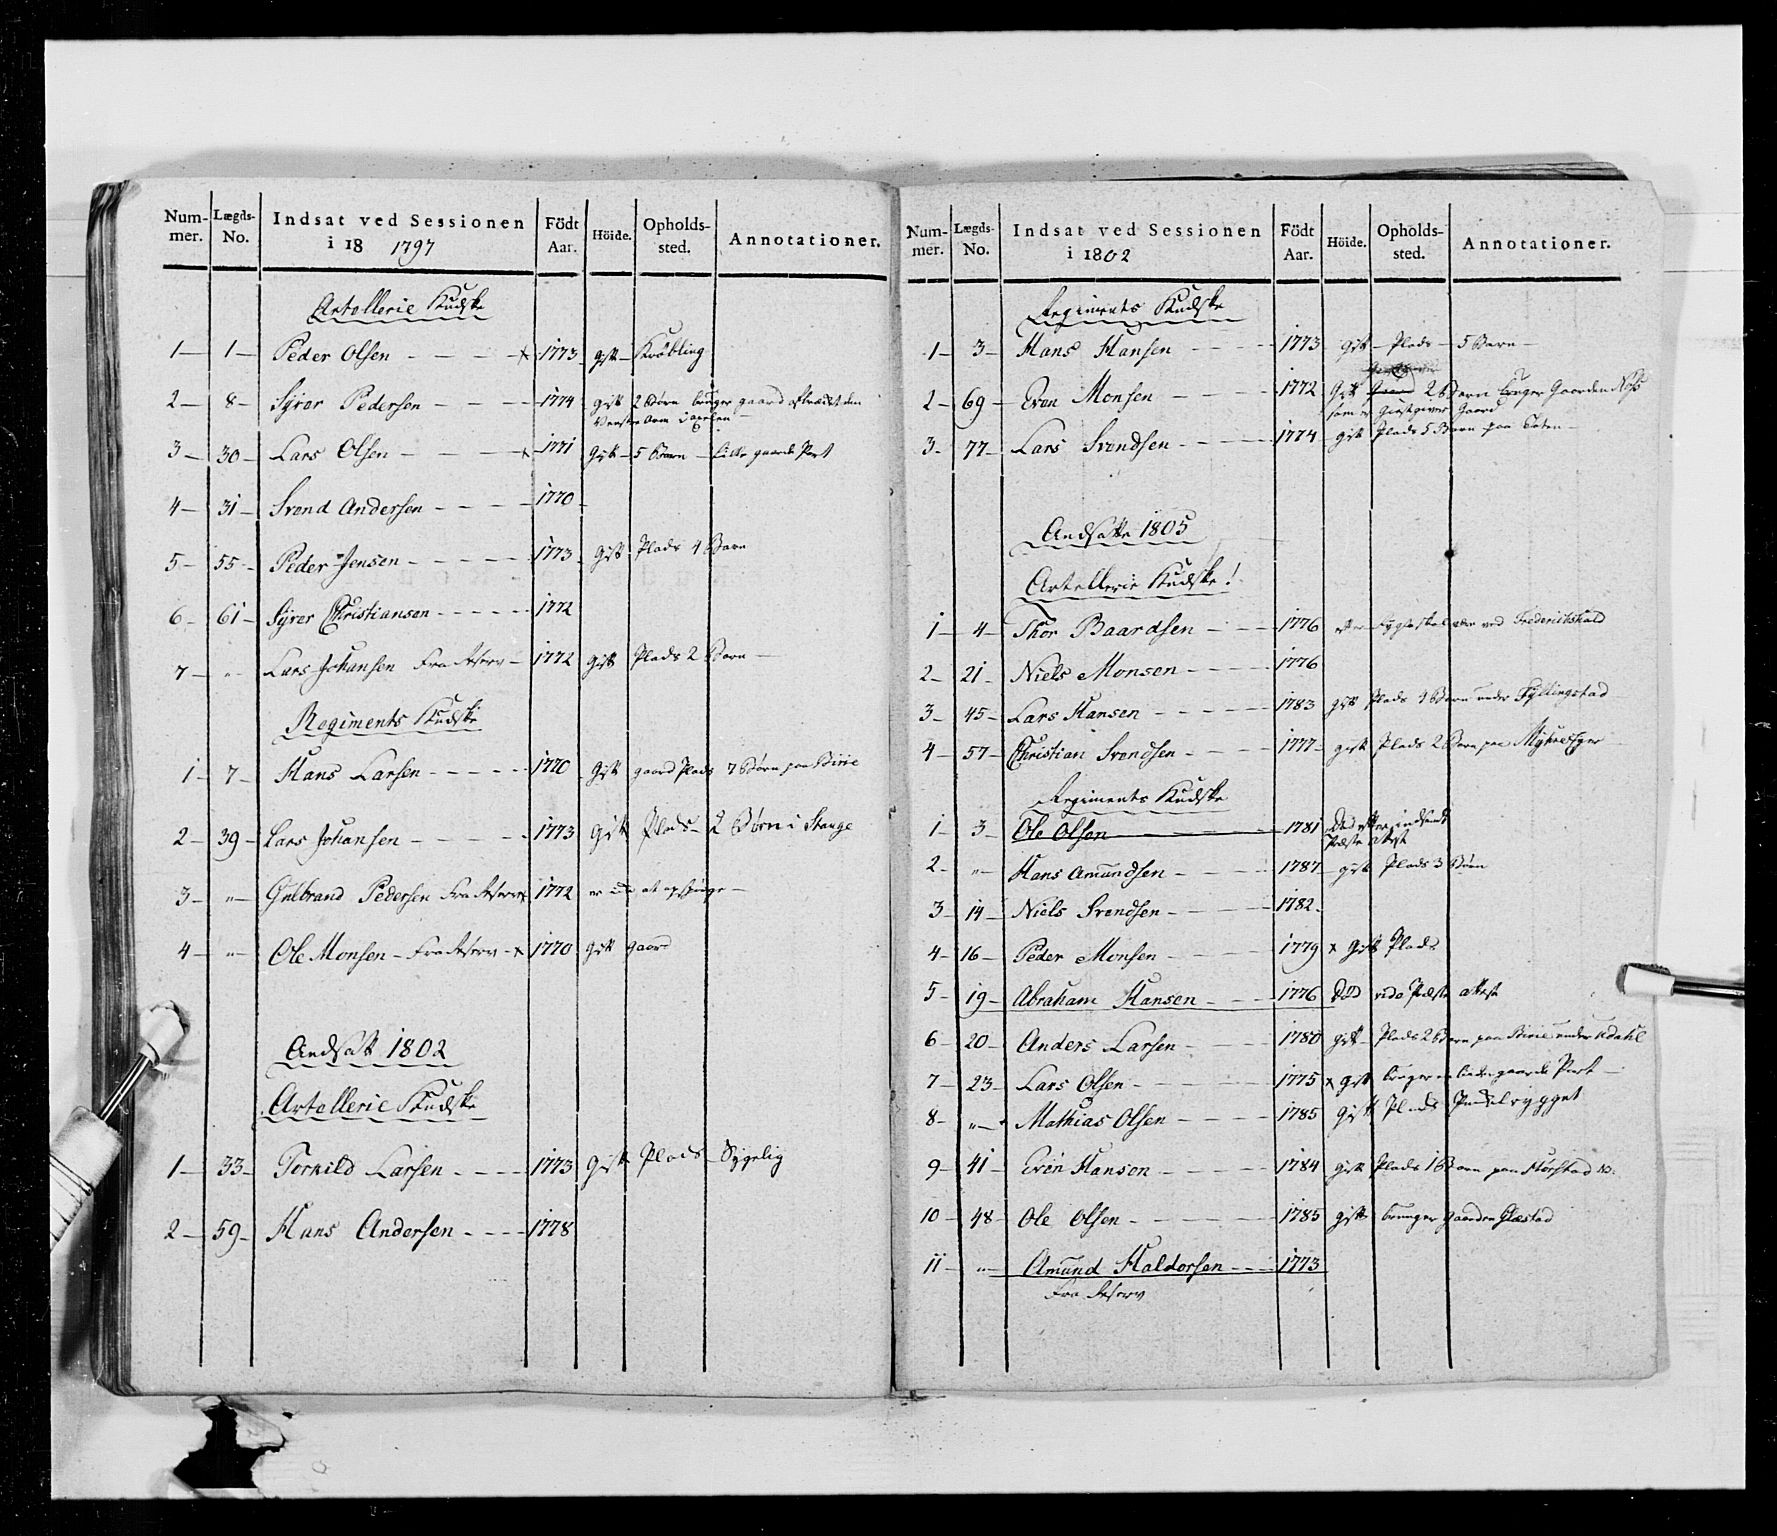 Num-mer. Lægds-No. Indsat ved Sessionen i 18 1797 Födt Aar. Höide. Opholds-sted. Annotationer.
Artollerie Kudske
1 — 1 — Peder Olsen - - - x 1773 gift — Kröbling
2 — 8 — Syver Pedersen - - - 1774 gift 2 Börn bruger gaard den
Venstre Arm
3 — 30 — Lars Olsen - - - x 1771 Gift — 5 Barn — gaards Part
4 — 31 — Svend Andersen - - - 1770
5 — 55 — Peder Jensen - - - 1773 Gift Plads 4 Barn
6 — 61 — Syver Christiansen - - - 1772
7 — " — Lars Johansen Fra Reserv — 1772 Gift Plads 2 Barn —
Regiments Kudske
1 — 7 — Hans Larsen - - - 1770 Gift gaard Plads 7 Börn paa Birie
2 — 39 — Lars Johansen - - - 1773 Gift Plads — 2 Börn i Stange
3 — " — Gulbrand Pedersen Fra Reserv x 1772 er at opspörge —
4 — " — Ole Monsen — Fra Reserv — x 1770 Gift gaard
Andsatt 1802
Artollerie Kudske
1 — 33 — Torkild Larsen - - - 1773 Gift Plads — Sygelig
2 — 59 — Hans Andersen - - - 1778
Num-mer. Lægds-No. Indsat ved Sessionen i 1802 Födt Aar. Höide. Opholds-sted. Annotationer.
Regiments Kudske
1 — 3 — Hans Hansen - - - 1773 gift — Plads — 5 Barn —
2 — 69 — Even Monsen - - - 1772 Gift 2 Barn bruger Gaarden
som er Giestgiver Gaard
3 — 77 — Lars Svendsen - - - 1774 — gift Plads 5 Barn paa Toten —
Andsatte 1805
Artellerie Kudske!
1 — 4 — Thor Baardsen - - - 1776 ved Frederikshald
2 — 21 — Niels Monsen - - - 1776
3 — 45 — Lars Hansen - - - 1783 gift Plads 4 Barn under Gyllingstad
4 — 57 — Christian Svendsen - - - 1777 — gift Plads 2 Barn paa
Regiments Kudske
1 — 3 — Ole Olsen 1781 Död efter indsendt
Præste Attest
2 — " — Hans Amundsen - - - 1787 — gift Plads 3 Börn
3 — 14 — Niels Svendsen - - - 1782
4 — 16 — Peder Monsen - - - 1779 x Gift Plads
5 — 19 — Abraham Hansen - - - 1776 Död vide Præste attest
6 — 20 — Anders Larsen - - - 1780 gift — Plads 2 Barn paa Birie under
7 — 23 — Lars Olsen - - - 1775 x Gift bruger en liden gaards Part —
8 — " — Mathias Olsen - - - 1785 Gift Plads
9 — 41 — Even Hanson - - - 1784 gift Plads 1 Barn paa
10 — 48 — Ole Olsen - - - 1785 gift bruuger gaarden Glæstad
11 — " — Amund Haldorsen - - - 1773
Fra Reserv